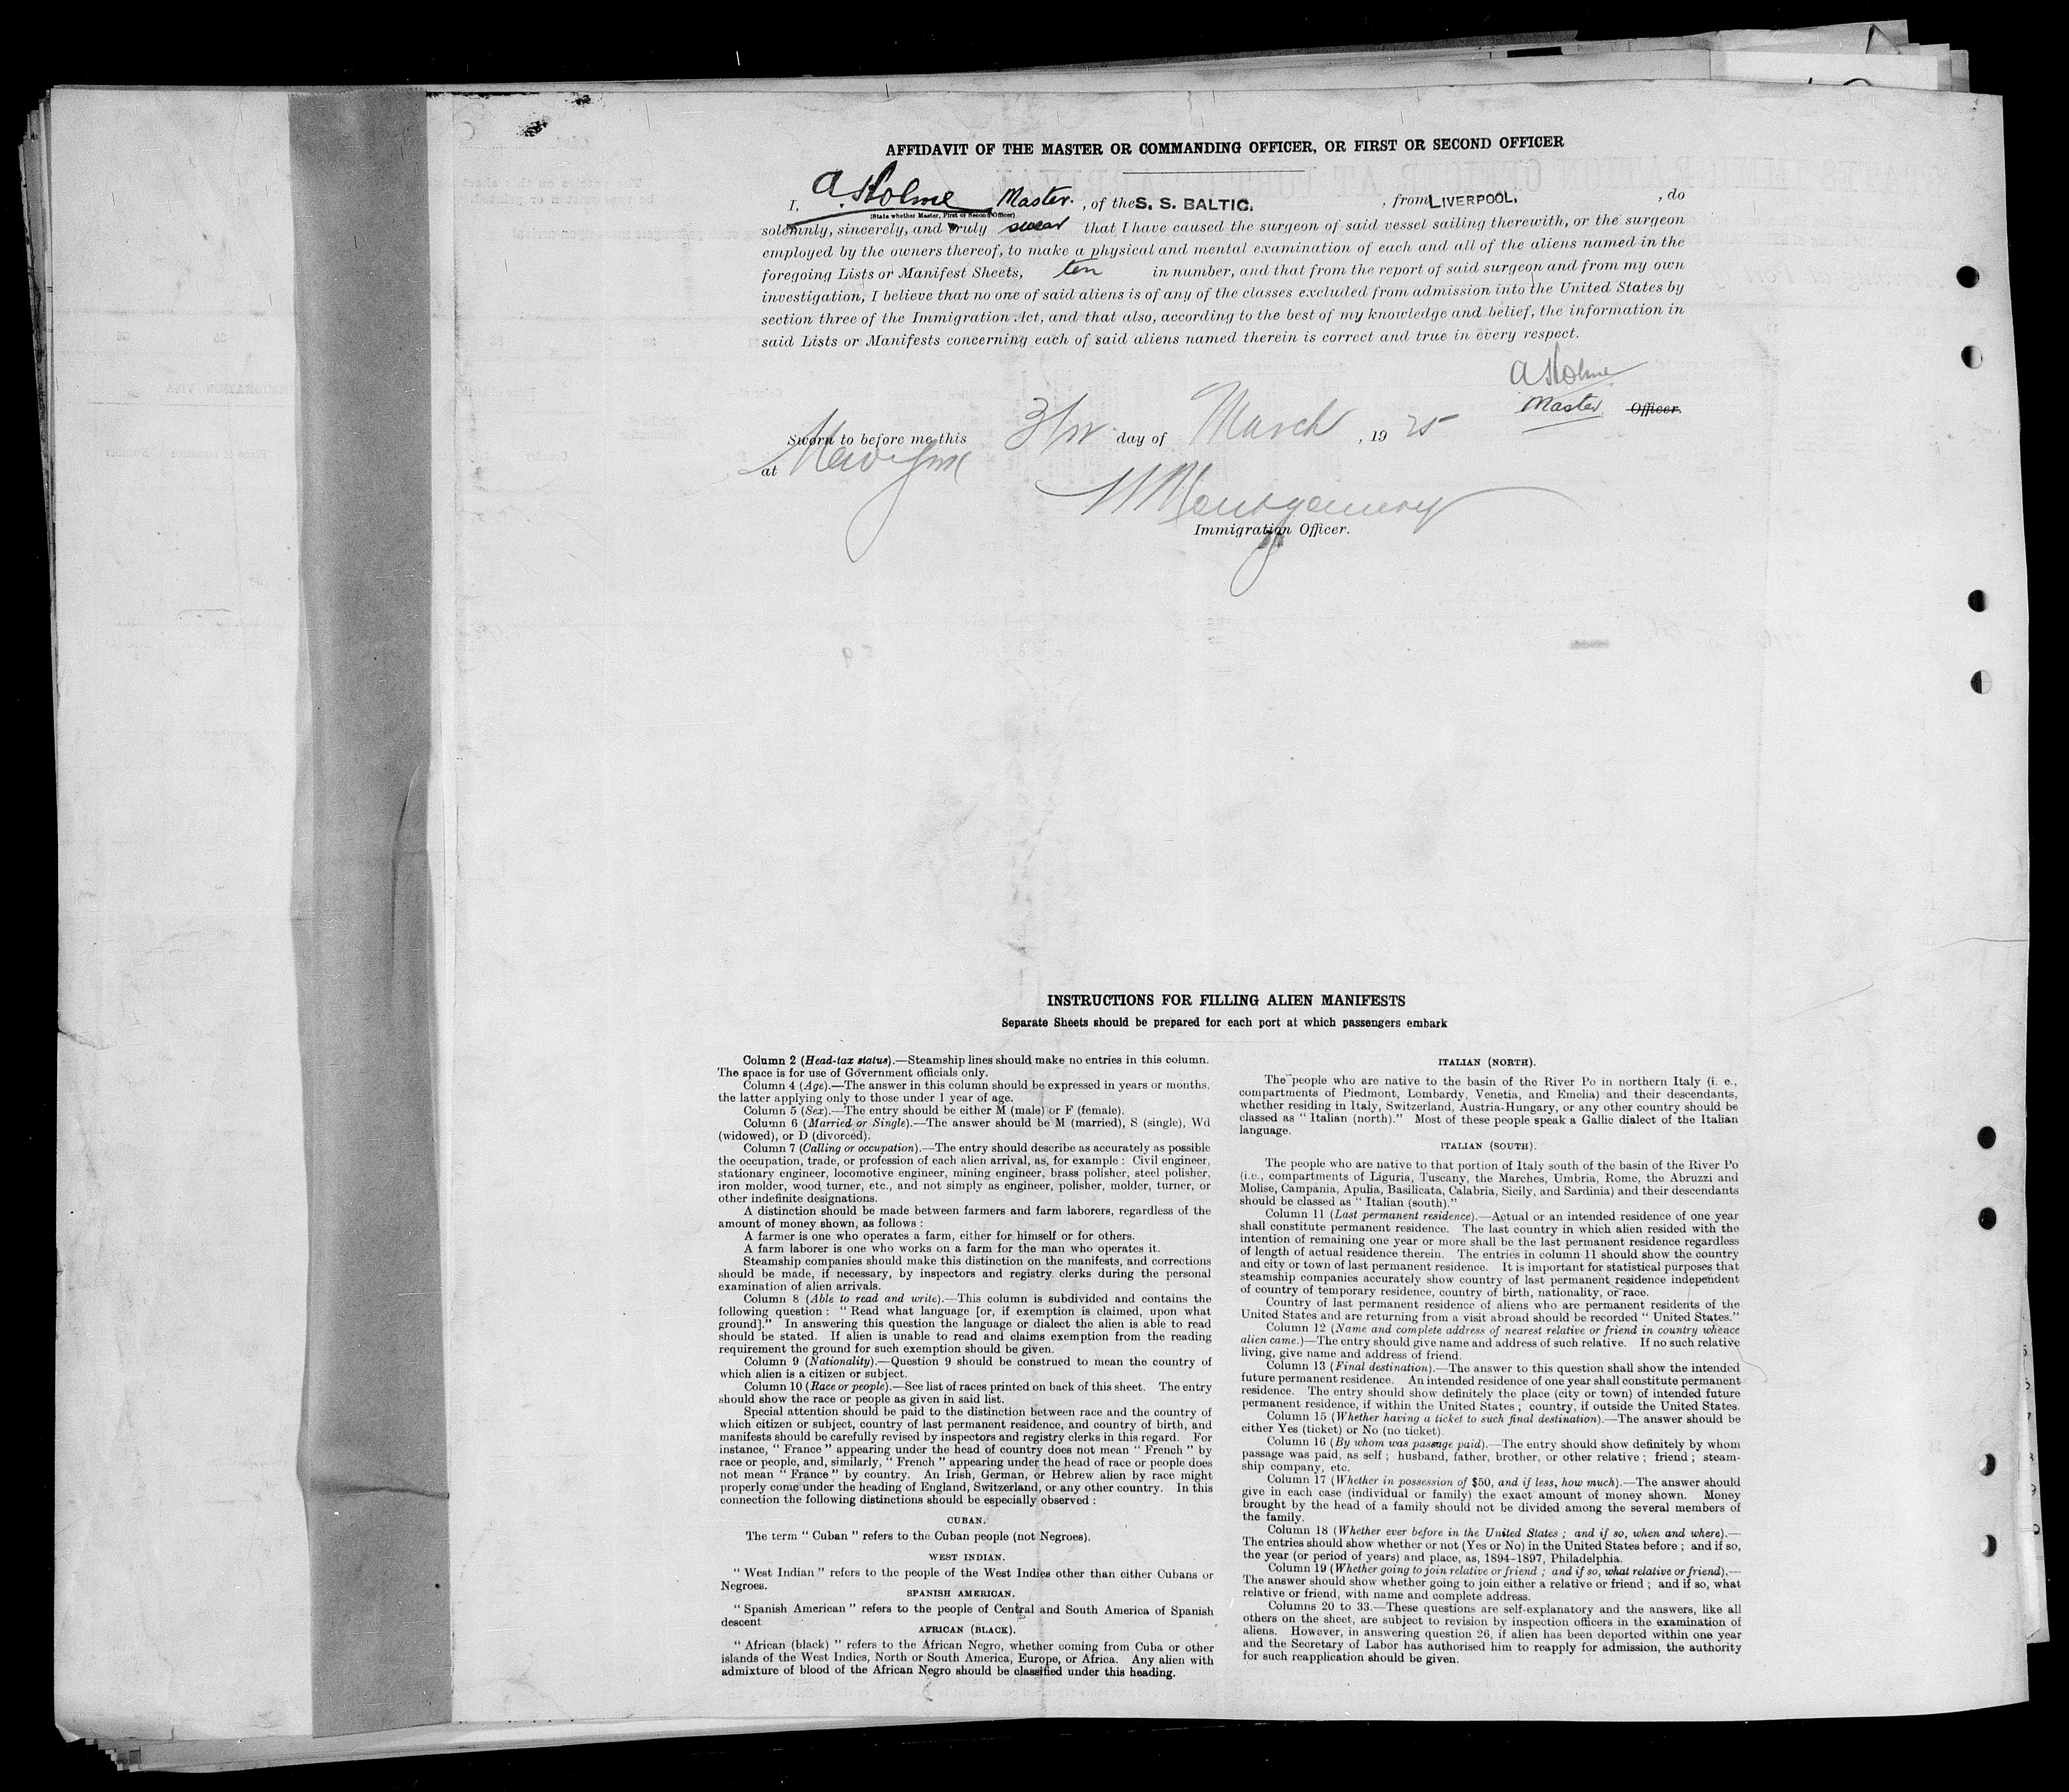 AFFIDAVIT OF THE MASTER OR COMMANDING OFFICER, OR FIRST OR SECOND OFFICER
I, A Holme Master. , of the S. S. BALTIC. , from LIVERPOOL. , do
(State whether Master, First or Second Officer)
solemnly, sincerely, and truly swear that I have caused the surgeon of said vessel sailing therewith, or the surgeon
employed by the owners thereof, to make a physical and mental examination of each and all of the aliens named in the
foregoing Lists or Manifest Sheets, ten in number, and that from the report of said surgeon and from my own
investigation, I believe that no one of said aliens is of any of the classes excluded from admission into the United States by
section three of the Immigration Act, and that also, according to the best of my knowledge and belief, the information in
said Lists or Manifests concerning each of said aliens named therein is correct and true in every respect.
A Holme
Master Officer.
Sworn to before me this day of March , 19 25
at New York
Montgomery
Immigration Officer.
INSTRUCTIONS FOR FILLING ALIEN MANIFESTS
Separate Sheets should be prepared for each port at which passengers embark
Column 2 (Head-tax status).—Steamship lines should make no entries in this column.
The space is for use of Government officials only.
Column 4 (Age).—The answer in this column should be expressed in years or months,
the latter applying only to those under 1 year of age.
Column 5 (Sex).—The entry should be either M (male) or F (female).
Column 6 (Married or Single).—The answer should be M (married), S (single), Wd
(widowed), or D (divorced).
Column 7 (Calling or occupation).—The entry should describe as accurately as possible
the occupation, trade, or profession of each alien arrival, as, for example : Civil engineer,
stationary engineer, locomotive engineer, mining engineer, brass polisher, steel polisher,
iron molder, wood turner, etc., and not simply as engineer, polisher, molder, turner, or
other indefinite designations.
A distinction should be made between farmers and farm laborers, regardless of the
amount of money shown, as follows :
A farmer is one who operates a farm, either for himself or for others.
A farm laborer is one who works on a farm for the man who operates it.
Steamship companies should make this distinction on the manifests, and corrections
should be made, if necessary, by inspectors and registry clerks during the personal
examination of alien arrivals.
Column 8 (Able to read and write).—This column is subdivided and contains the
following question : “ Read what language [or, if exemption is claimed, upon what
ground].” In answering this question the language or dialect the alien is able to read
should be stated. If alien is unable to read and claims exemption from the reading
requirement the ground for such exemption should be given.
Column 9 (Nationality).—Question 9 should be construed to mean the country of
which alien is a citizen or subject.
Column 10 (Race or people).—See list of races printed on back of this sheet. The entry
should show the race or people as given in said list.
Special attention should be paid to the distinction between race and the country of
which citizen or subject, country of last permanent residence, and country of birth, and
manifests should be carefully revised by inspectors and registry clerks in this regard. For
instance, “ France ” appearing under the head of country does not mean “ French ” by
race or people, and, similarly, “ French ” appearing under the head of race or people does
not mean “ France ” by country. An Irish, German, or Hebrew alien by race might
properly come under the heading of England, Switzerland, or any other country. In this
connection the following distinctions should be especially observed :
CUBAN.
The term “ Cuban ” refers to the Cuban people (not Negroes).
WEST INDIAN.
“ West Indian ” refers to the people of the West Indies other than either Cubans or
Negroes.
SPANISH AMERICAN.
“ Spanish American ” refers to the people of Central and South America of Spanish
descent
AFRICAN (BLACK).
“ African (black) ” refers to the African Negro, whether coming from Cuba or other
islands of the West Indies, North or South America, Europe, or Africa. Any alien with
admixture of blood of the African Negro should be classified under this heading.
ITALIAN (NORTH).
The people who are native to the basin of the River Po in northern Italy (i. e.,
compartments of Piedmont, Lombardy, Venetia, and Emelia) and their descendants,
whether residing in Italy, Switzerland, Austria-Hungary, or any other country should be
classed as “ Italian (north).” Most of these people speak a Gallic dialect of the Italian
language.
ITALIAN (SOUTH).
The people who are native to that portion of Italy south of the basin of the River Po
(i.e., compartments of Liguria, Tuscany, the Marches, Umbria, Rome, the Abruzzi and
Molise, Campania, Apulia, Basilicata, Calabria, Sicily, and Sardinia) and their descendants
should be classed as “ Italian (south).”
Column 11 (Last permanent residence).—Actual or an intended residence of one year
shall constitute permanent residence. The last country in which alien resided with the
intention of remaining one year or more shall be the last permanent residence regardless
of length of actual residence therein. The entries in column 11 should show the country
and city or town of last permanent residence. It is important for statistical purposes that
steamship companies accurately show country of last permanent residence independent
of country of temporary residence, country of birth, nationality, or race.
Country of last permanent residence of aliens who are permanent residents of the
United States and are returning from a visit abroad should be recorded “ United States.”
Column 12 (Name and complete address of nearest relative or friend in country whence
alien came.)—The entry should give name and address of such relative. If no such relative
living, give name and address of friend.
Column 13 (Final destination).—The answer to this question shall show the intended
future permanent residence. An intended residence of one year shall constitute permanent
residence. The entry should show definitely the place (city or town) of intended future
permanent residence, if within the United States ; country, if outside the United States.
Column 15 (Whether having a ticket to such final destination).—The answer should be
either Yes (ticket) or No (no ticket).
Column 16 (By whom was passage paid).—The entry should show definitely by whom
passage was paid, as self ; husband, father, brother, or other relative ; friend ; steam-
ship company, etc.
Column 17 (Whether in possession of $50, and if less, how much).—The answer should
give in each case (individual or family) the exact amount of money shown. Money
brought by the head of a family should not be divided among the several members of
the family.
Column 18 (Whether ever before in the United States ; and if so, when and where).—
The entries should show whether or not (Yes or No) in the United States before ; and if so,
the year (or period of years) and place, as, 1894–1897, Philadelphia.
Column 19 (Whether going to join relative or friend ; and if so, what relative or friend).—
The answer should show whether going to join either a relative or friend ; and if so, what
relative or friend, with name and complete address.
Columns 20 to 33.—These questions are self-explanatory and the answers, like all
others on the sheet, are subject to revision by inspection officers in the examination of
aliens. However, in answering question 26, if alien has been deported within one year
and the Secretary of Labor has authorised him to reapply for admission, the authority
for such reapplication should be given.